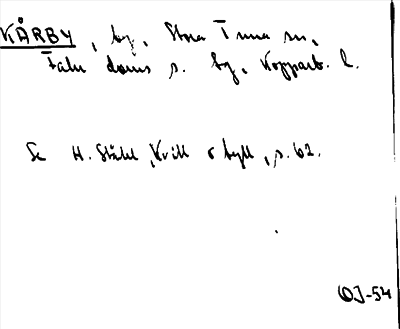 KÅRBY, by, Stora Tuna sn,
Falu doms s. by, Kopparb. l.
Se H. Ståhl, Kvill o byll, s. 62.
OJ-54